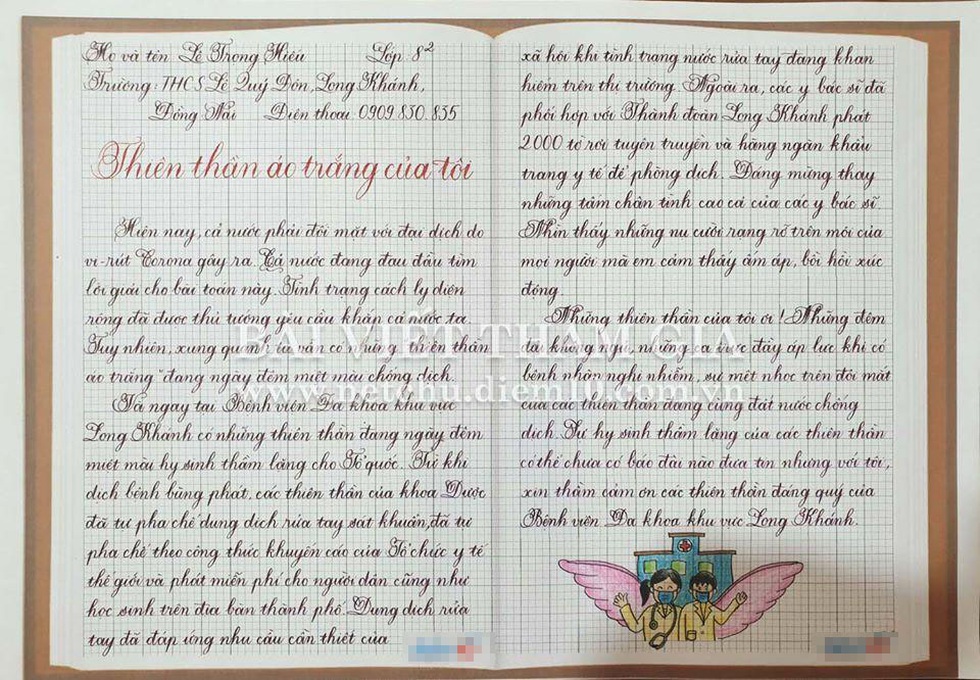 Họ và tên Lê Trọng Hiếu Lớp 8²
Trường: THCS Lê Quý Đôn, Long Khánh,
Đồng Nai Điện thoại: 0909 830 855
Thiên thần áo trắng của tôi
Hiện nay, cả nước phải đối mặt với đại dịch do
vi-rút Corona gây ra. Cả nước đang đau đầu tìm
lời giải cho bài toán này. Tình trạng cách ly diện
rộng đã được thủ tướng yêu cầu khẩn cả nước ta.
Tuy nhiên, xung quanh ta vẫn có những "thiên thần
áo trắng" đang ngày đêm miệt mài chống dịch.
Và ngay tại Bệnh viện Đa khoa khu vực
Long Khánh có những thiên thần đang ngày đêm
miệt mài hy sinh thầm lặng cho Tổ quốc. Từ khi
dịch bệnh bùng phát, các thiên thần của khoa Dược
đã tự pha chế dung dịch rửa tay sát khuẩn, đã tự
pha chế theo công thức khuyến cáo của Tổ chức y tế
thế giới và phát miễn phí cho người dân cũng như
học sinh trên địa bàn thành phố. Dung dịch rửa
tay đã đáp ứng nhu cầu cần thiết của
xã hội khi tình trạng nước rửa tay đang khan
hiếm trên thị trường. Ngoài ra, các y bác sĩ đã
phối hợp với Thành đoàn Long Khánh phát
2000 tờ rơi tuyên truyền và hàng ngàn khẩu
trang y tế để phòng dịch. Đáng mừng thay
những tấm chân tình cao cả của các y bác sĩ.
Nhìn thấy những nụ cười rạng rỡ trên môi của
mọi người mà em cảm thấy ấm áp, bồi hồi xúc
động.
Những thiên thần của tôi ơi! Những đêm
dài không ngủ, những ca trực đầy áp lực khi có
bệnh nhân nghi nhiễm, sự mệt nhọc trên đôi mắt
của các thiên thần đang cùng đất nước chống
dịch. Sự hy sinh thầm lặng của các thiên thần
có thể chưa có báo đài nào đưa tin nhưng với tôi,
xin thầm cảm ơn các thiên thần đáng quý của
Bệnh viện Đa khoa khu vực Long Khánh.
BÀI VIẾT THAM GIA
www.netchu.diem10.com.vn